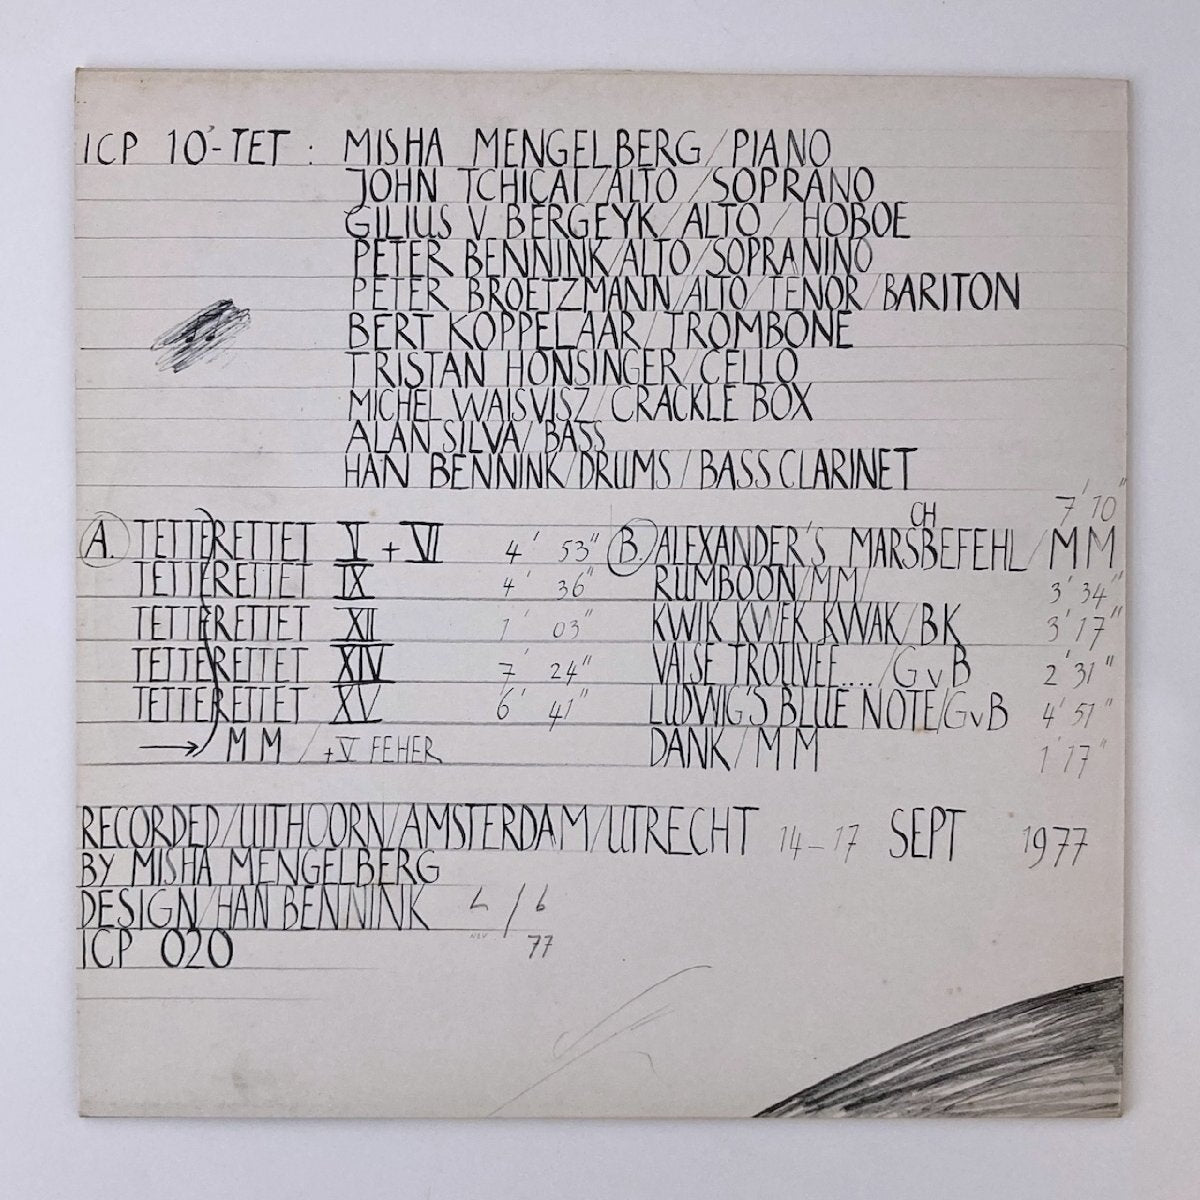 ICP 10'-TET : MISHA MENGELBERG / PIANO
JOHN TCHICAI / ALTO / SOPRANO
GILIUS V BERGEYK / ALTO / HOBOE
PETER BENNINK / ALTO / SOPRANINO
PETER BROETZMANN / ALTO / TENOR / BARITON
BERT KOPPELAAR / TROMBONE
TRISTAN HONSINGER / CELLO
MICHEL WAISVISZ / CRACKLE BOX
ALAN SILVA / BASS
HAN BENNINK / DRUMS / BASSCLARINET
A. TETTERETTET V + VI 4' 53"
TETTERETTET IX 4' 36"
TETTERETTET XII 1' 03"
TETTERETTET XIV 7' 24"
TETTERETTET XV 6' 41"
→ MM / +V FEHER
CH 7' 10"
B. ALEXANDER'S MARSBEFEHL / MM
RUMBOON / MM / 3' 34"
KWIK KWEK KWAK / BK 3' 17"
VALSE TROUVEE.... / GvB 2' 31"
LUDWIG'S BLUE NOTE / GvB 4' 51"
DANK / MM 1' 17"
RECORDED / UITHOORN / AMSTERDAM / UTRECHT 14-17 SEPT 1977
BY MISHA MENGELBERG
DESIGN / HAN BENNINK
ICP 020 77